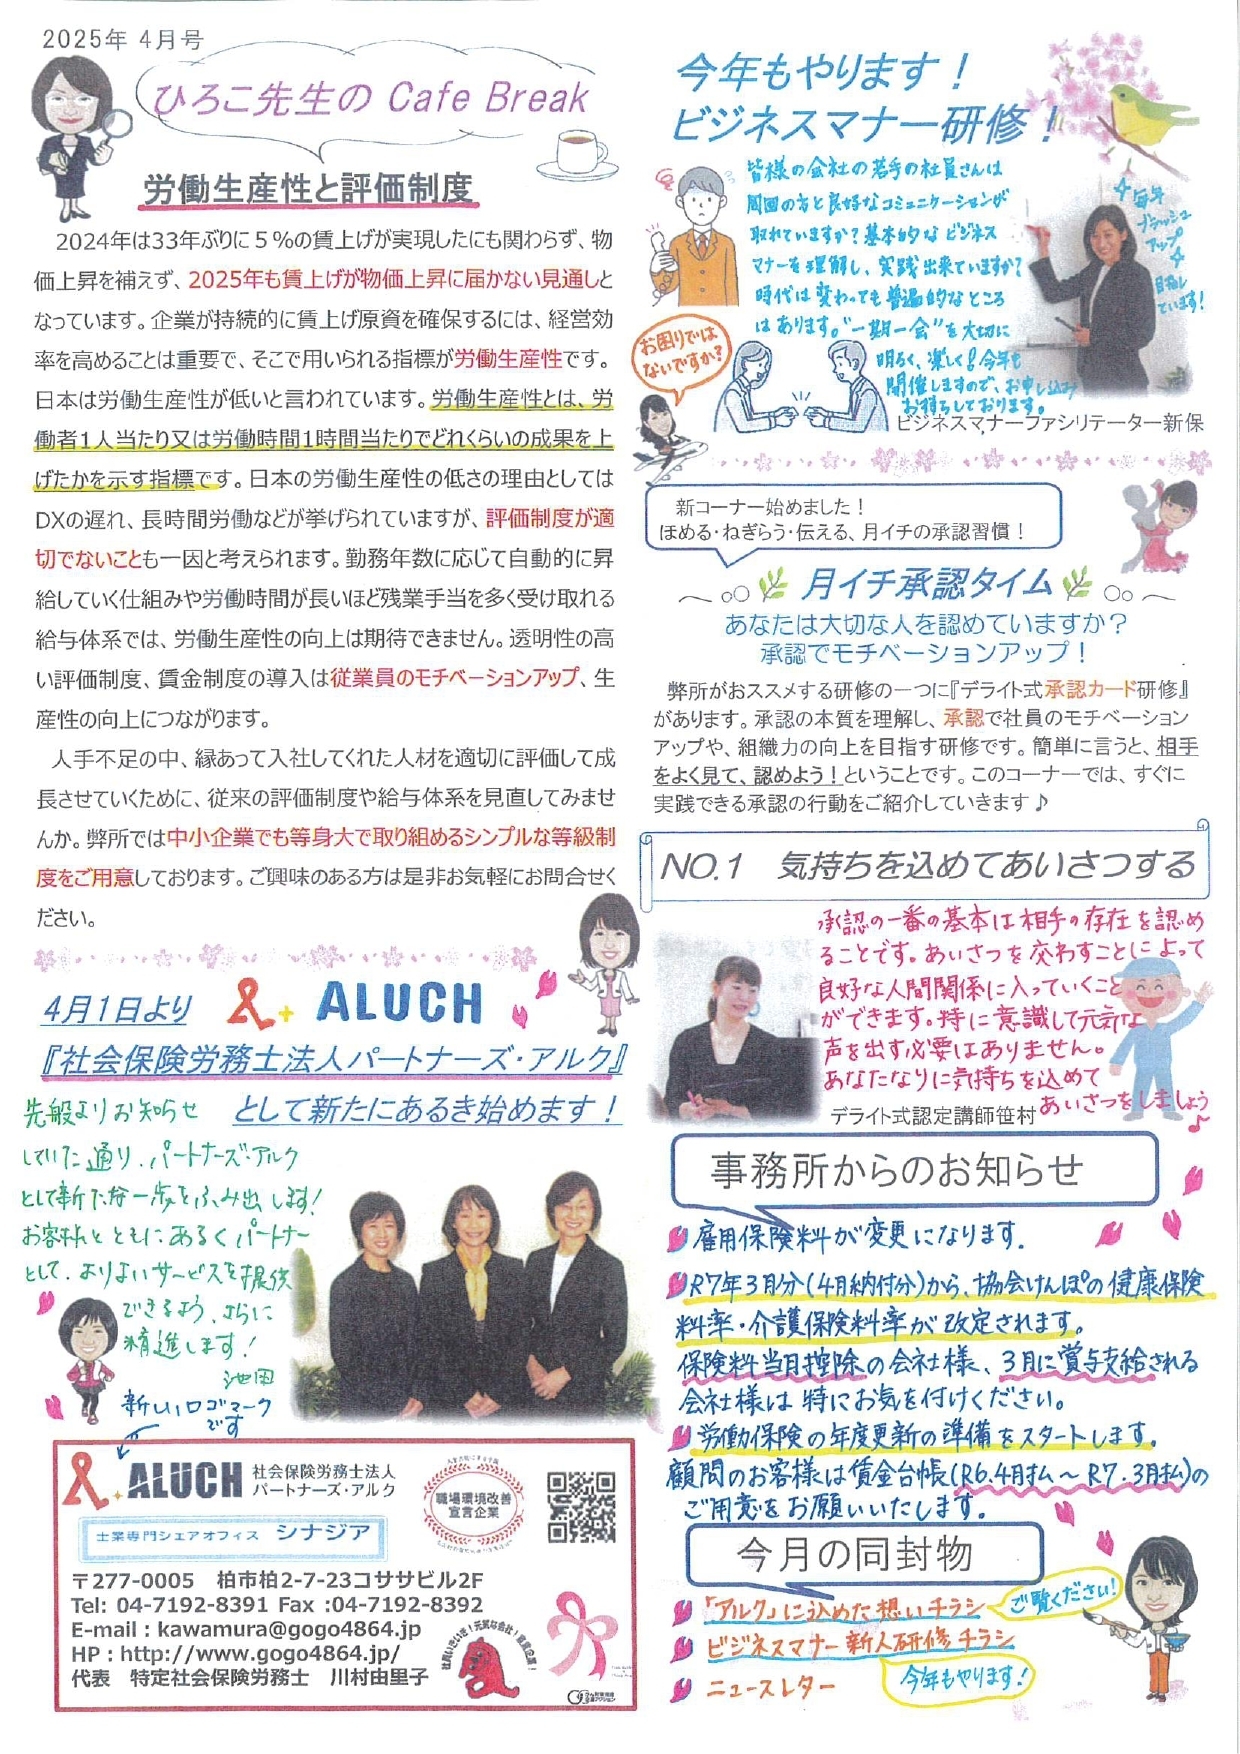 2025年 4月号
ひろこ先生の Cafe Break
労働生産性と評価制度
2024年は33年ぶりに５%の賃上げが実現したにも関わらず、物
価上昇を補えず、2025年も賃上げが物価上昇に届かない見通しと
なっています。企業が持続的に賃上げ原資を確保するには、経営効
率を高めることは重要で、そこで用いられる指標が労働生産性です。
日本は労働生産性が低いと言われています。労働生産性とは、労
働者1人当たり又は労働時間1時間当たりでどれくらいの成果を上
げたかを示す指標です。日本の労働生産性の低さの理由としては
DXの遅れ、長時間労働などが挙げられていますが、評価制度が適
切でないことも一因と考えられます。勤務年数に応じて自動的に昇
給していく仕組みや労働時間が長いほど残業手当を多く受け取れる
給与体系では、労働生産性の向上は期待できません。透明性の高
い評価制度、賃金制度の導入は従業員のモチベーションアップ、生
産性の向上につながります。
人手不足の中、縁あって入社してくれた人材を適切に評価して成
長させていくために、従来の評価制度や給与体系を見直してみませ
んか。弊所では中小企業でも等身大で取り組めるシンプルな等級制
度をご用意しております。ご興味のある方は是非お気軽にお問合せく
ださい。
4月1日より ALUCH
『社会保険労務士法人パートナーズ・アルク』
として新たにあるき始めます！
先般よりお知らせ
していた通り、パートナーズ・アルク
として新たな一歩をふみ出します！
お客様とともにあるくパートナー
として、よりよいサービスを提供
できるよう、さらに
精進します！
池田
新しいロゴマーク
です
ALUCH 社会保険労務士法人
パートナーズ・アルク
職場環境改善
宣言企業
士業専門シェアオフィス シナジア
〒277-0005 柏市柏2-7-23コササビル2F
Tel: 04-7192-8391 Fax :04-7192-8392
E-mail : kawamura@gogo4864.jp
HP : http://www.gogo4864.jp/
代表 特定社会保険労務士 川村由里子
今年もやります！
ビジネスマナー研修！
皆様の会社の若手の社員さんは
周囲の方と良好なコミュニケーションが
取れていますか？基本的なビジネス
マナーを理解し、実践出来ていますか？
時代は変わっても普遍的なところ
はあります。"一期一会"を大切に
明るく、楽しく！今年も
開催しますので、お申し込み
お待ちしております。
お困りでは
ないですか？
毎年
ブラッシュ
アップ
目指し
ています！
ビジネスマナーファシリテーター新保
新コーナー始めました！
ほめる・ねぎらう・伝える、月イチの承認習慣！
月イチ承認タイム
あなたは大切な人を認めていますか？
承認でモチベーションアップ！
弊所がおススメする研修の一つに『デライト式承認カード研修』
があります。承認の本質を理解し、承認で社員のモチベーション
アップや、組織力の向上を目指す研修です。簡単に言うと、相手
をよく見て、認めよう！ということです。このコーナーでは、すぐに
実践できる承認の行動をご紹介していきます♪
NO.1 気持ちを込めてあいさつする
承認の一番の基本は相手の存在を認め
ることです。あいさつを交わすことによって
良好な人間関係に入っていくこと
ができます。特に意識して元気な
声を出す必要はありません。
あなたなりに気持ちを込めて
あいさつをしましょう♪
デライト式認定講師笹村
事務所からのお知らせ
雇用保険料が変更になります。
R7年3月分(4月納付分)から、協会けんぽの健康保険
料率・介護保険料率が改定されます。
保険料当月控除の会社様、3月に賞与支給される
会社様は特にお気を付けください。
労働保険の年度更新の準備をスタートします。
顧問のお客様は賃金台帳(R6.4月払～R7.3月払)の
ご用意をお願いいたします。
今月の同封物
「アルク」に込めた想いチラシ
ご覧ください！
ビジネスマナー新人研修チラシ
ニュースレター
今年もやります！